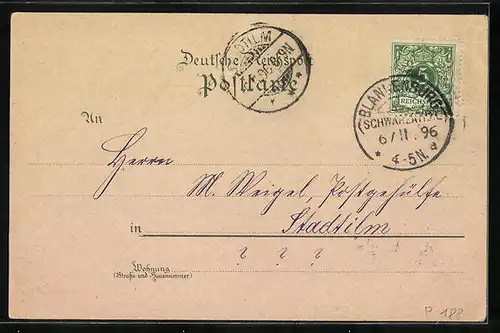 Deutsche Reichspost
Postkarte
REICH
BLANKENBURG
SCHWARZATHAL
6/11.96
4-5N.
An
Herrn
M. Weigel, Postgehülfe
in Stadtilm
? ? ?
Wohnung
(Straße und Hausnummer)
P 188